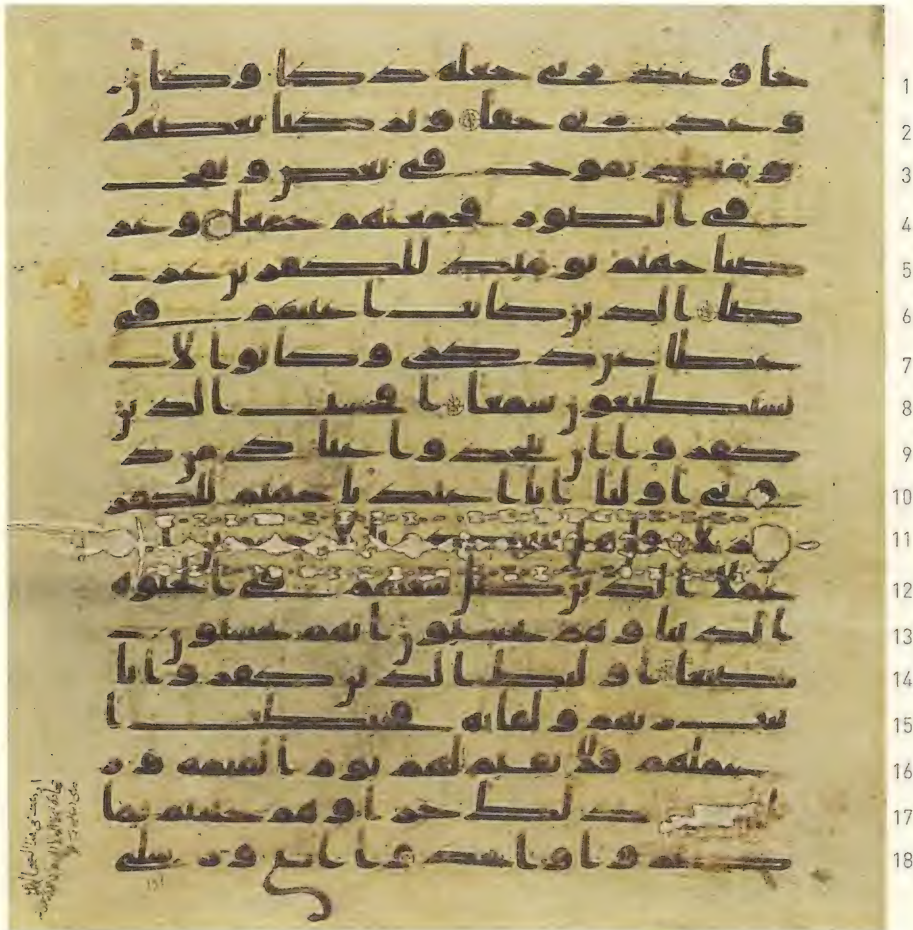 جا وعد ربي جعله دكا وكان
وعد ربي حقا وتركنا بعضهم
يومئذ يموج في بعض ونفخ
في الصور فجمعنهم جمعا وعر
ضنا جهنم يومئذ للكفرين عر
ضا الذين كانت اعينهم في
غطا عن ذكري وكانوا لا
يستطيعون سمعا افحسب الذين
كفروا ان يتخذوا عبادي من د
وني اوليا انا اعتدنا جهنم للكفر
ين نزلا قل هل ننبئكم بالاخسرين ا
عملا الذين ضل سعيهم في الحيوه
الدنيا وهم يحسبون انهم يحسنون
صنعا اوليك الذين كفروا بايا
ت ربهم ولقايه فحبطت ا
عملهم فلا نقيم لهم يوم القيمه وز
نا ذلك جزاوهم جهنم بما
كفروا واتخذوا ايتي ورسلي
1
2
3
4
5
6
7
8
9
10
11
12
13
14
15
16
17
18